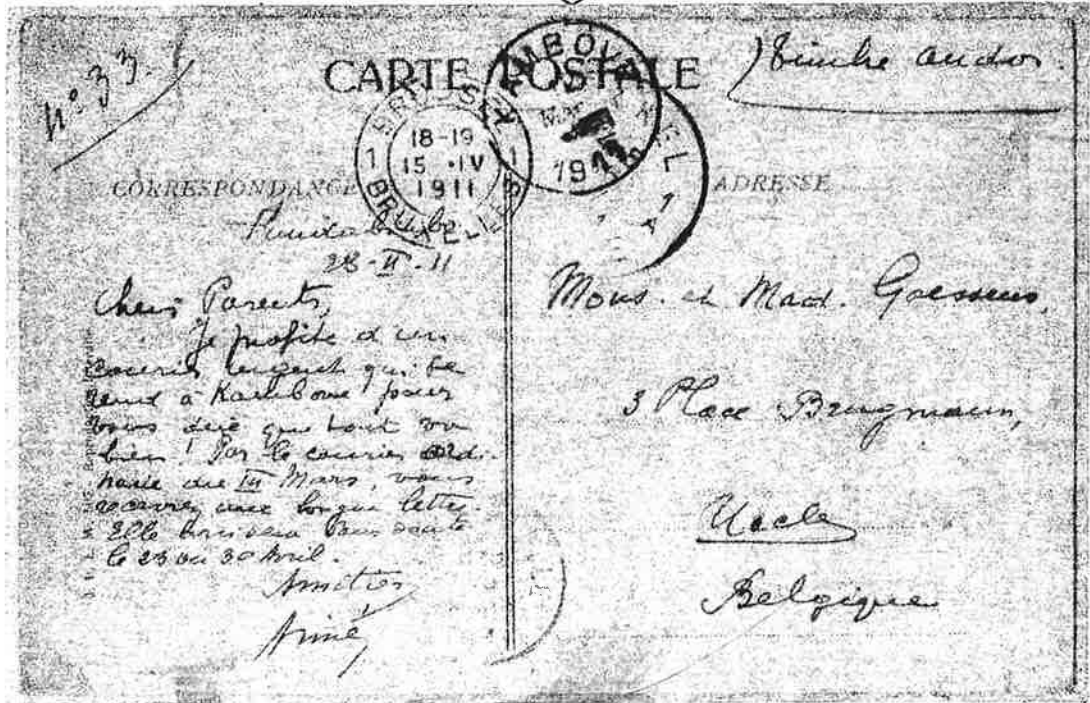 N° 33.
CARTE POSTALE
) timbre au dos.
18-19
15 · IV
1911
BRUXELLES
KAMBOVE
1911
CORRESPONDANCE
ADRESSE
28-II-11
Chers Parents,
Je profite d'un
courrier urgent qui se
rend à Kambove pour
vous dire que tout va
bien ! Par le courrier ordi-
naire du III Mars, vous
recevrez une longue lettre.
Elle arrivera sans doute
le 23 ou 30 Avril.
Amitiés
Aimé
Mons. et Mad. Goessens,
3 Place Brugmann,
Uccle
Belgique